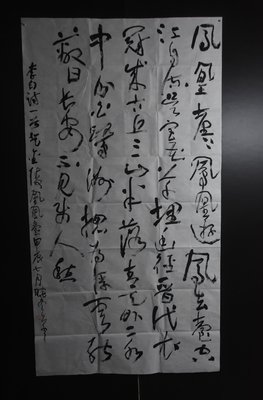 鳳凰臺上鳳凰遊鳳去臺空
江自流吳宮花草埋幽徑晉代衣
冠成古丘三山半落青天外一水
中分白鷺洲總為浮雲能
蔽日長安不見使人愁
李白詩一首登金陵鳳凰臺甲辰七月